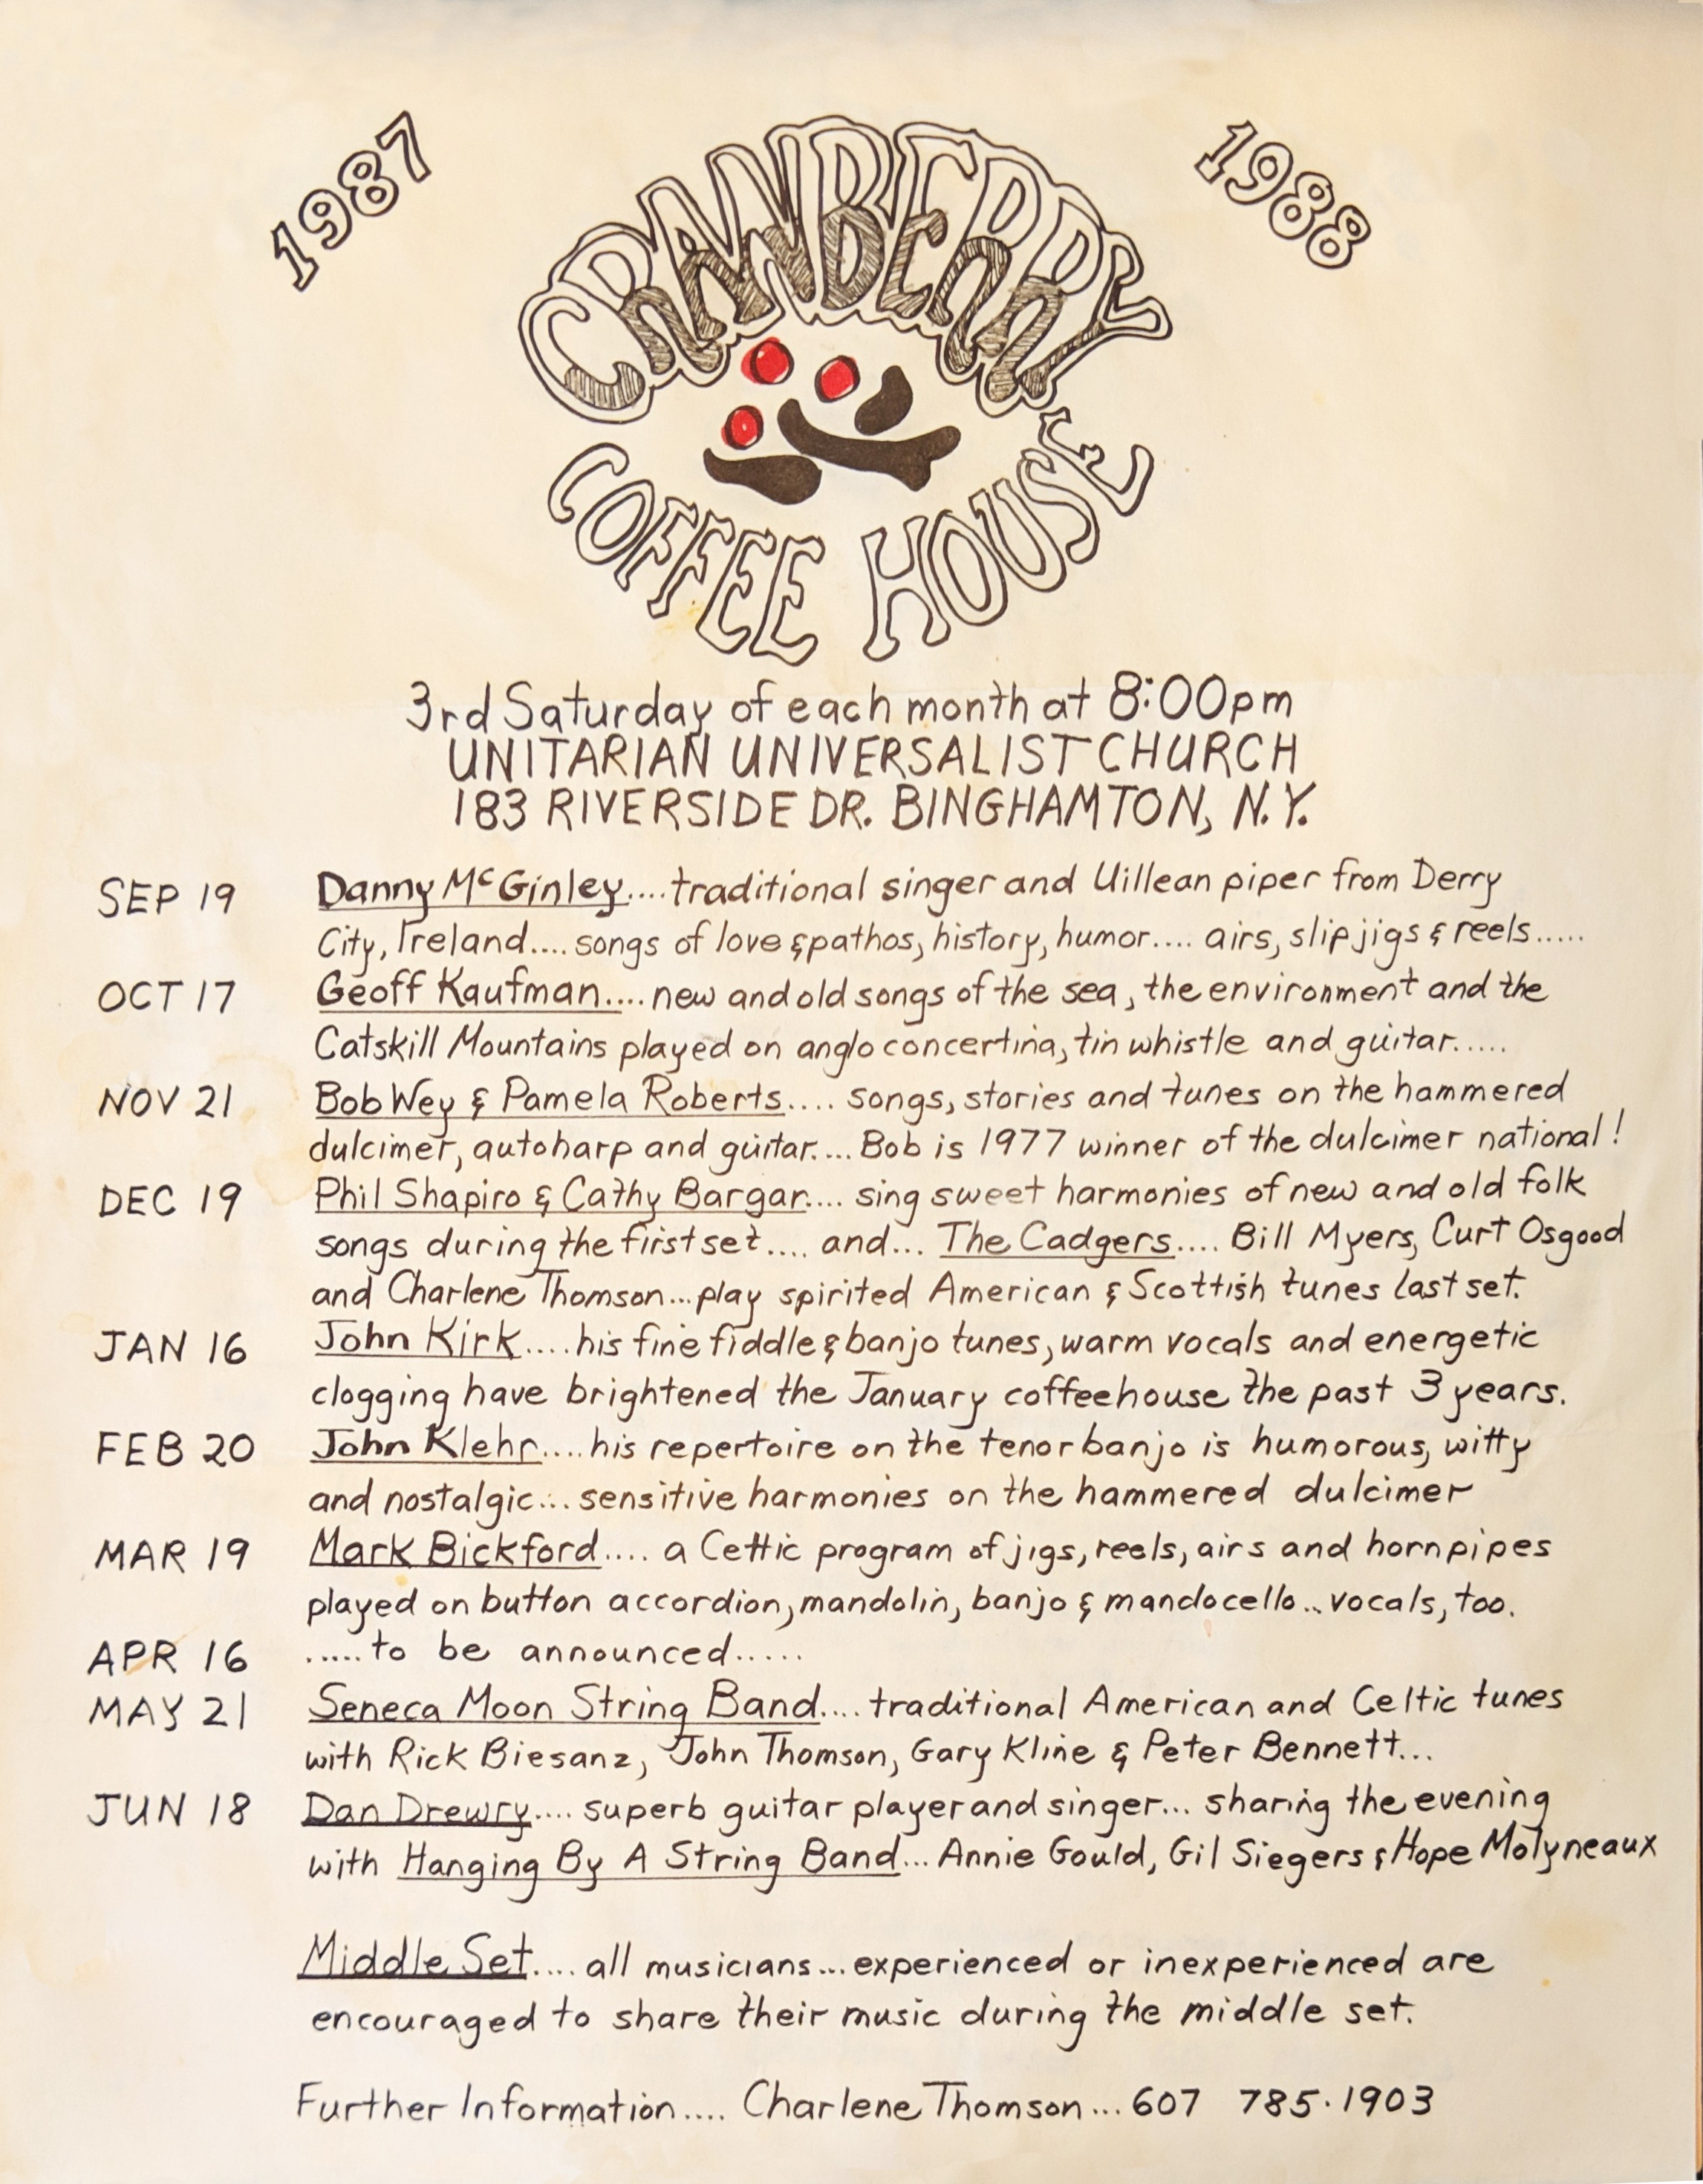 1987
1988
CRANBERRY
COFFEE HOUSE
3rd Saturday of each month at 8:00pm
UNITARIAN UNIVERSALIST CHURCH
183 RIVERSIDE DR. BINGHAMTON, N.Y.
SEP 19 Danny McGinley....traditional singer and Uillean piper from Derry
City, Ireland....songs of love & pathos, history, humor.... airs, slip jigs & reels.....
OCT 17 Geoff Kaufman....new and old songs of the sea, the environment and the
Catskill Mountains played on anglo concertina, tin whistle and guitar.....
NOV 21 Bob Wey & Pamela Roberts.... songs, stories and tunes on the hammered
dulcimer, autoharp and guitar....Bob is 1977 winner of the dulcimer national!
DEC 19 Phil Shapiro & Cathy Bargar.... sing sweet harmonies of new and old folk
songs during the first set.... and... The Cadgers.... Bill Myers, Curt Osgood
and Charlene Thomson...play spirited American & Scottish tunes last set.
JAN 16 John Kirk....his fine fiddle & banjo tunes, warm vocals and energetic
clogging have brightened the January coffeehouse the past 3 years.
FEB 20 John Klehr....his repertoire on the tenor banjo is humorous, witty
and nostalgic... sensitive harmonies on the hammered dulcimer
MAR 19 Mark Bickford.... a Celtic program of jigs, reels, airs and hornpipes
played on button accordion, mandolin, banjo & mandocello...vocals, too.
APR 16 .....to be announced.....
MAY 21 Seneca Moon String Band.... traditional American and Celtic tunes
with Rick Biesanz, John Thomson, Gary Kline & Peter Bennett...
JUN 18 Dan Drewry.... superb guitar player and singer... sharing the evening
with Hanging By A String Band... Annie Gould, Gil Siegers & Hope Molyneaux
Middle Set.... all musicians...experienced or inexperienced are
encouraged to share their music during the middle set.
Further Information.... Charlene Thomson...607 785·1903